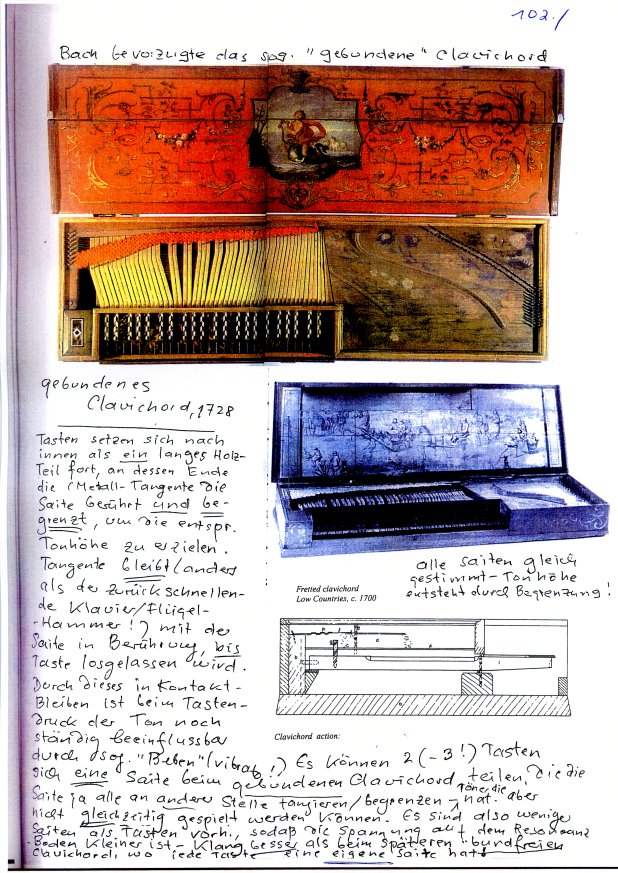 102./
Bach bevorzugte das sog. "gebundene" Clavichord
gebundenes
Clavichord, 1728
Tasten setzen sich nach
innen als ein langes Holz-
Teil fort, an dessen Ende
die (Metall-Tangente die
Saite berührt und be-
grenzt, um die entspr.
Tonhöhe zu erzielen.
Tangente bleibt (anders
als der zurückschnellen-
de Klavier/Flügel-
-Hammer!) mit der
Saite in Berührung, bis
Taste losgelassen wird.
Durch dieses in Kontakt-
Bleiben ist beim Tasten-
Druck der Ton noch
ständig beeinflussbar
durch sog. "Beben" (vibrat.)
alle Saiten gleich
gestimmt - Tonhöhe
entsteht durch Begrenzung!
Fretted clavichord
Low Countries, c. 1700
Clavichord action:
Es können 2 (-3!) Tasten
sich eine Saite beim gebundenen Clavichord teilen, die die
Saite ja alle an anderer Stelle tangieren/begrenzen, Töne, die nat. aber
nicht gleichzeitig gespielt werden können. Es sind also wenige
Saiten als Tasten vorh., sodaß die Spannung auf dem Resonanz
-Boden kleiner ist - Klang besser als beim späteren bundfreien
Clavichord, wo jede Taste eine eigene Saite hat!